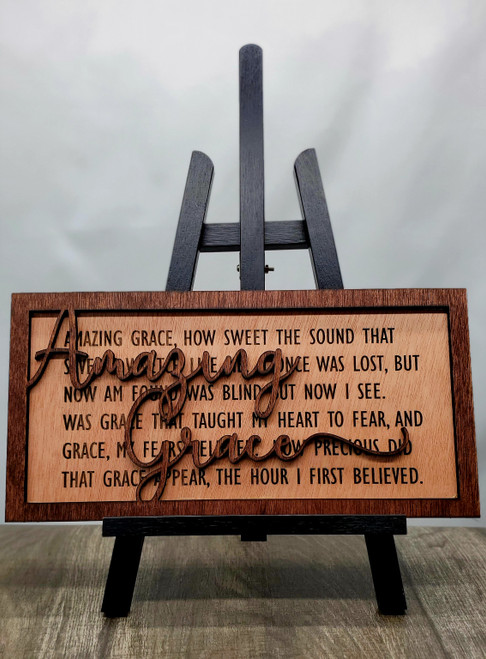 Amazing
Grace
AMAZING GRACE, HOW SWEET THE SOUND THAT
ONCE WAS LOST, BUT
NOW AM FOUND WAS BLIND BUT NOW I SEE.
WAS GRACE THAT TAUGHT MY HEART TO FEAR, AND
GRACE, MY FEARS HOW PRECIOUS DID
THAT GRACE APPEAR, THE HOUR I FIRST BELIEVED.